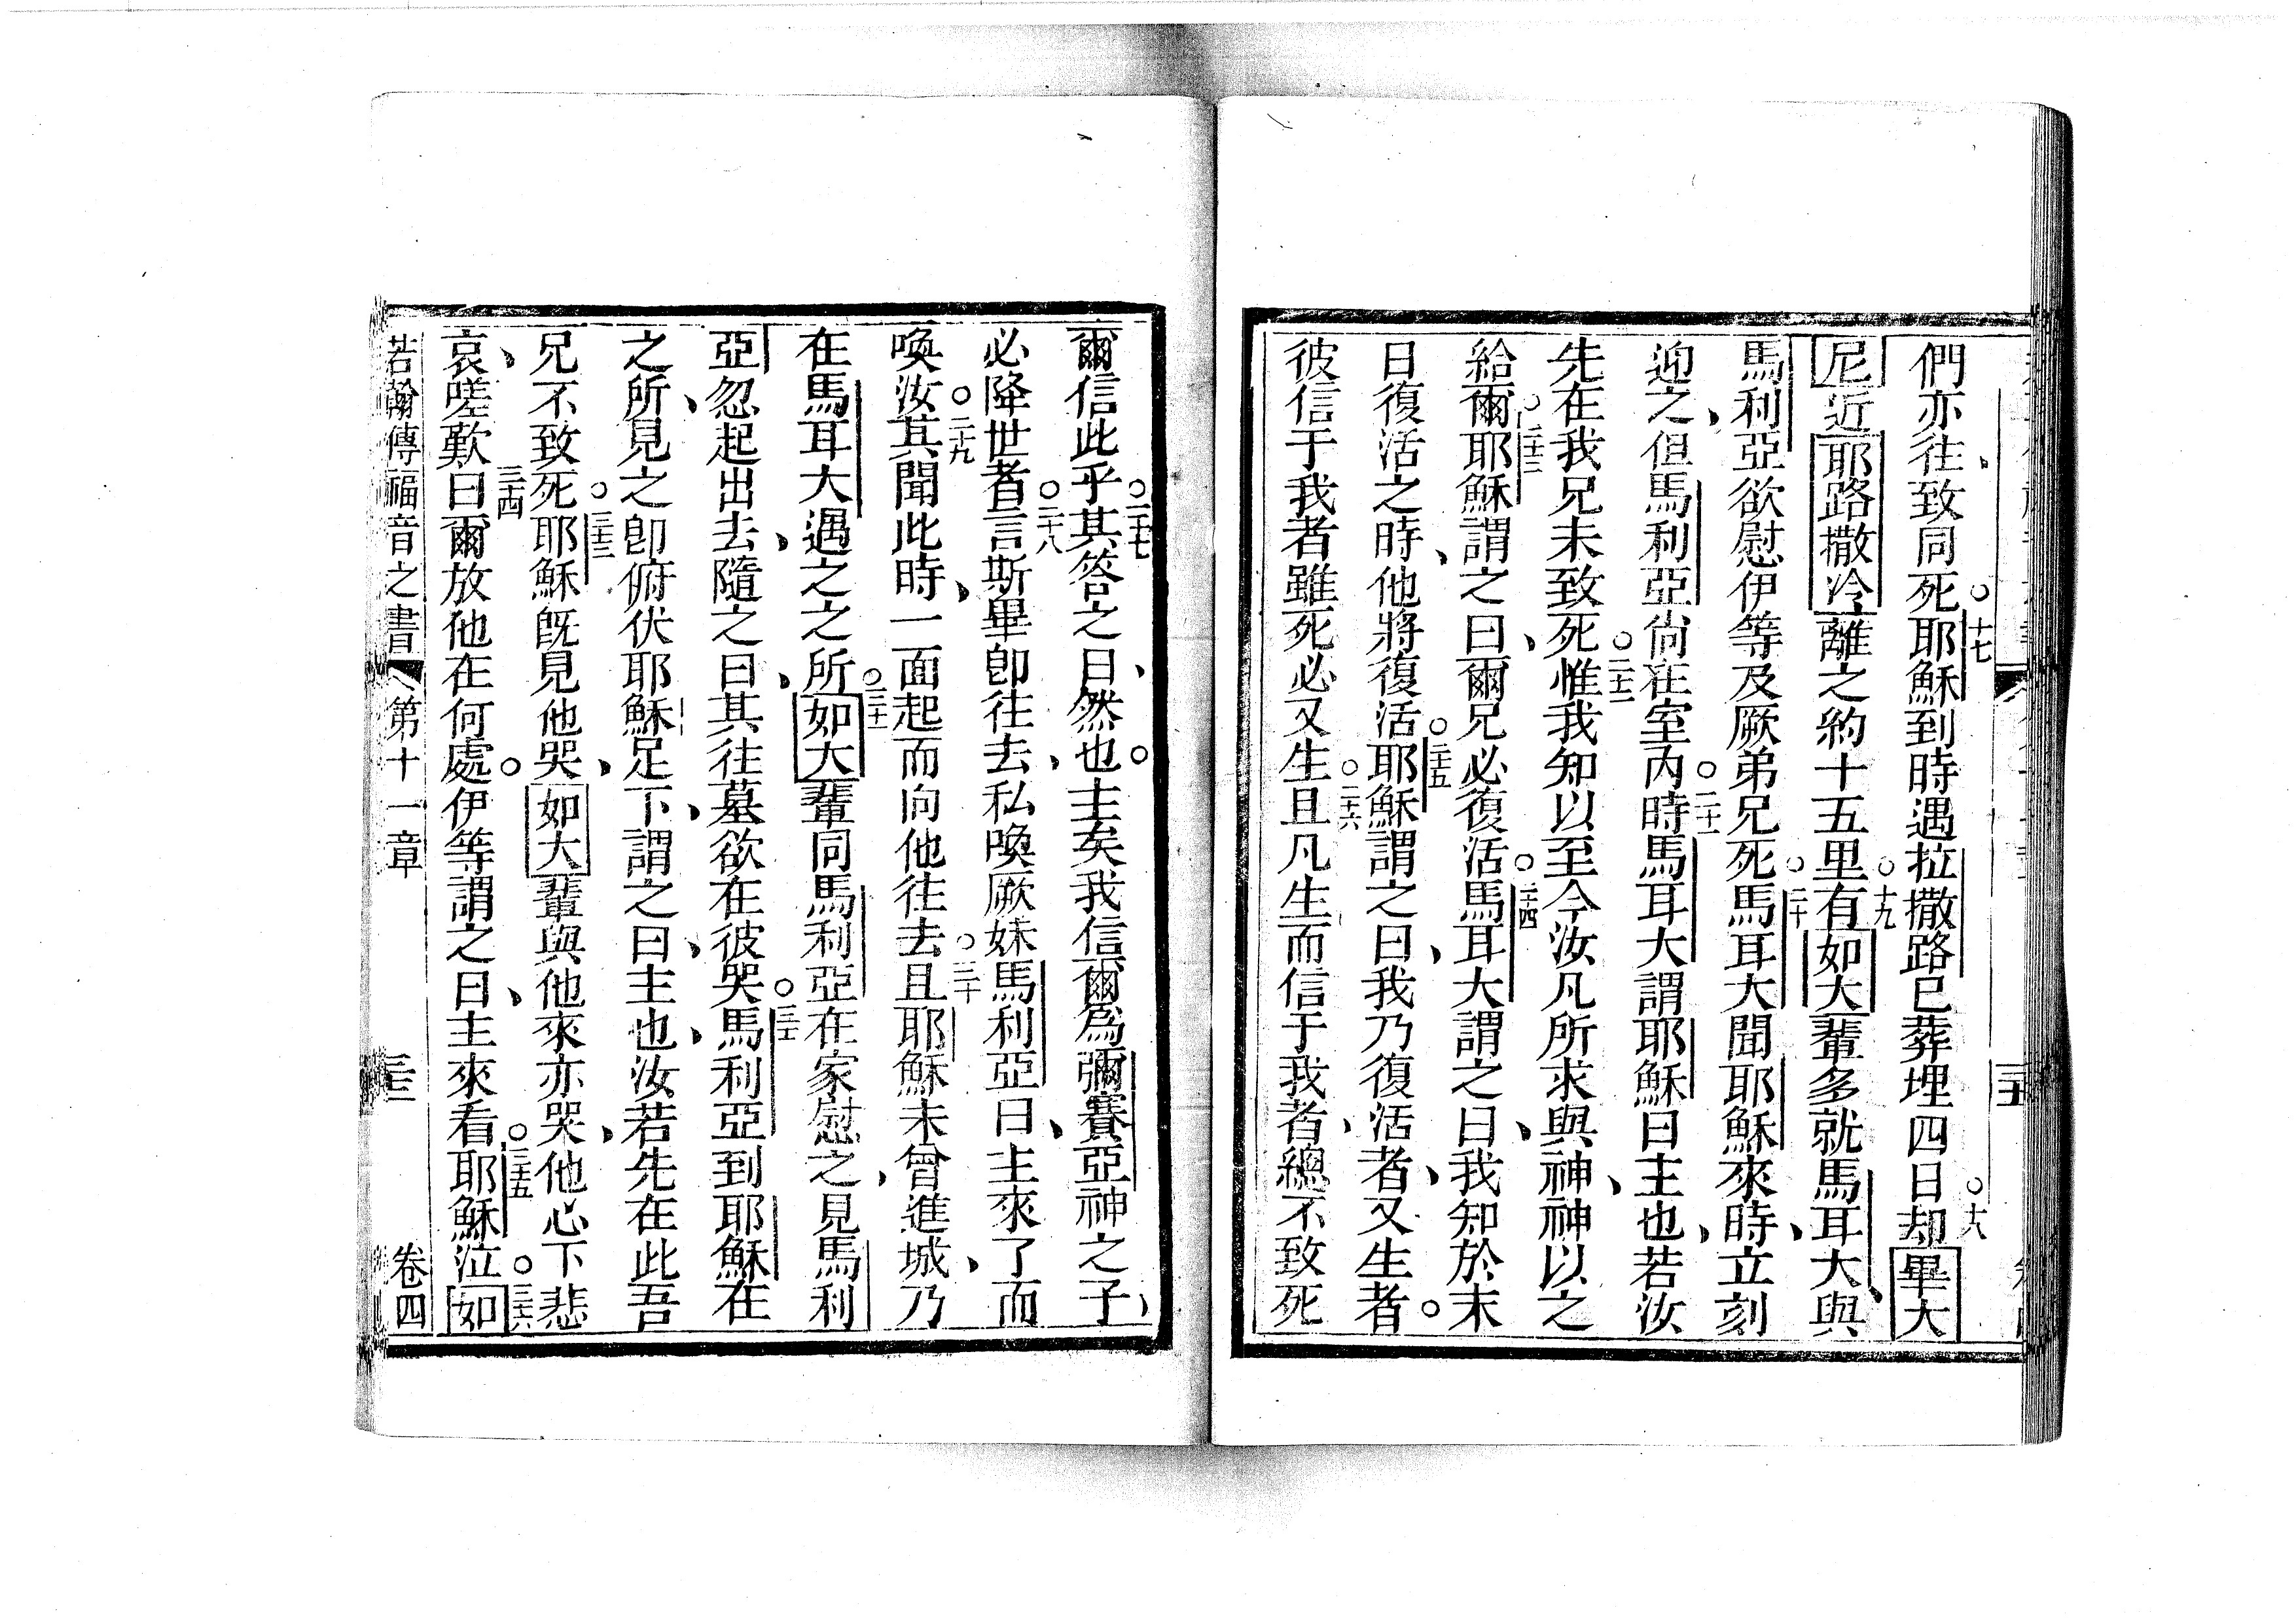 們亦往、致同死○十七耶穌到時遇拉撒路已葬埋四日却○十八畢大
尼近耶路撒冷離之約十五里○十九有如大輩多就馬耳大、與
馬利亞欲慰伊等及厥弟兄死○二十馬耳大聞耶穌來時、立刻
迎之、但馬利亞尚在室內○二十一時馬耳大謂耶穌曰主也、若汝
先在我兄未致死○二十二惟我知以至今汝凡所求與神、神以之
給爾○二十三耶穌謂之曰、爾兄必復活○二十四馬耳大謂之曰、我知於末
日復活之時、他將復活○二十五耶穌謂之曰、我乃復活者、又生者。
彼信于我者雖死必又生○二十六且凡生而信于我者、總不致死
爾信此乎○二十七其答之曰、然也。主矣我信爾為彌賽亞神之子、
必降世者○二十八言斯畢卽往去、私喚厥妹馬利亞曰、主來了而
喚汝○二十九其聞此時、一面起而向他往去○三十且耶穌未曾進城、乃
在馬耳大遇之之所○三十一如大輩同馬利亞在家慰之、見馬利
亞忽起出去、隨之曰、其往墓欲在彼哭○三十二馬利亞到耶穌在
之所、見之卽俯伏耶穌足下、謂之曰、主也、汝若先在此吾
兄不致死○三十三耶穌旣見他哭、如大輩與他來亦哭、他心下悲
哀、嗟歎三十四曰爾放他在何處。伊等謂之曰、主來看○三十五耶穌泣○三十六如
若翰傳福音之書 第十一章 卷四